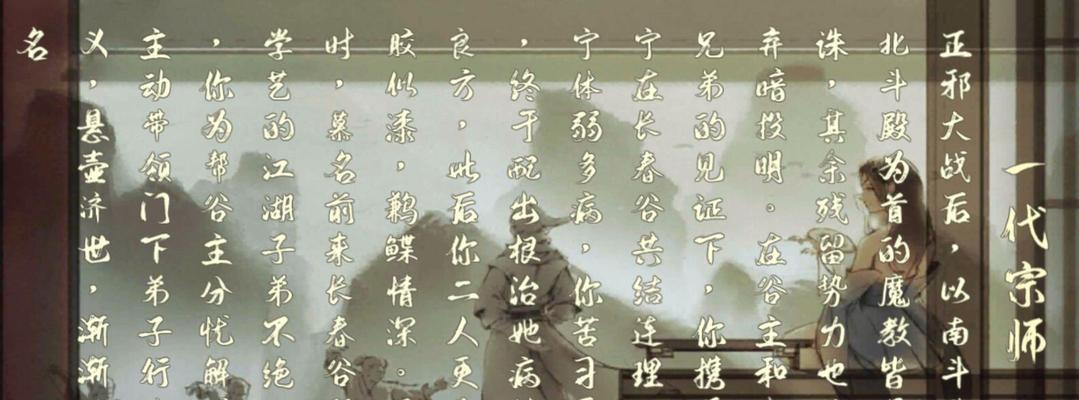 一代宗师
正邪大战后，以南斗
北斗殿为首的魔教皆
诛，其余残留势力也
弃暗投明。在谷主和
兄弟的见证下，你携
宁在长春谷共结连理
宁体弱多病，你苦习
，终于配出根治她病
良方，此后你二人更
胶似漆，鹣鲽情深。
时，慕名前来长春谷
学艺的江湖子弟不绝
，你为帮谷主分忧解
主动带领门下弟子行
义，悬壶济世，渐渐
名